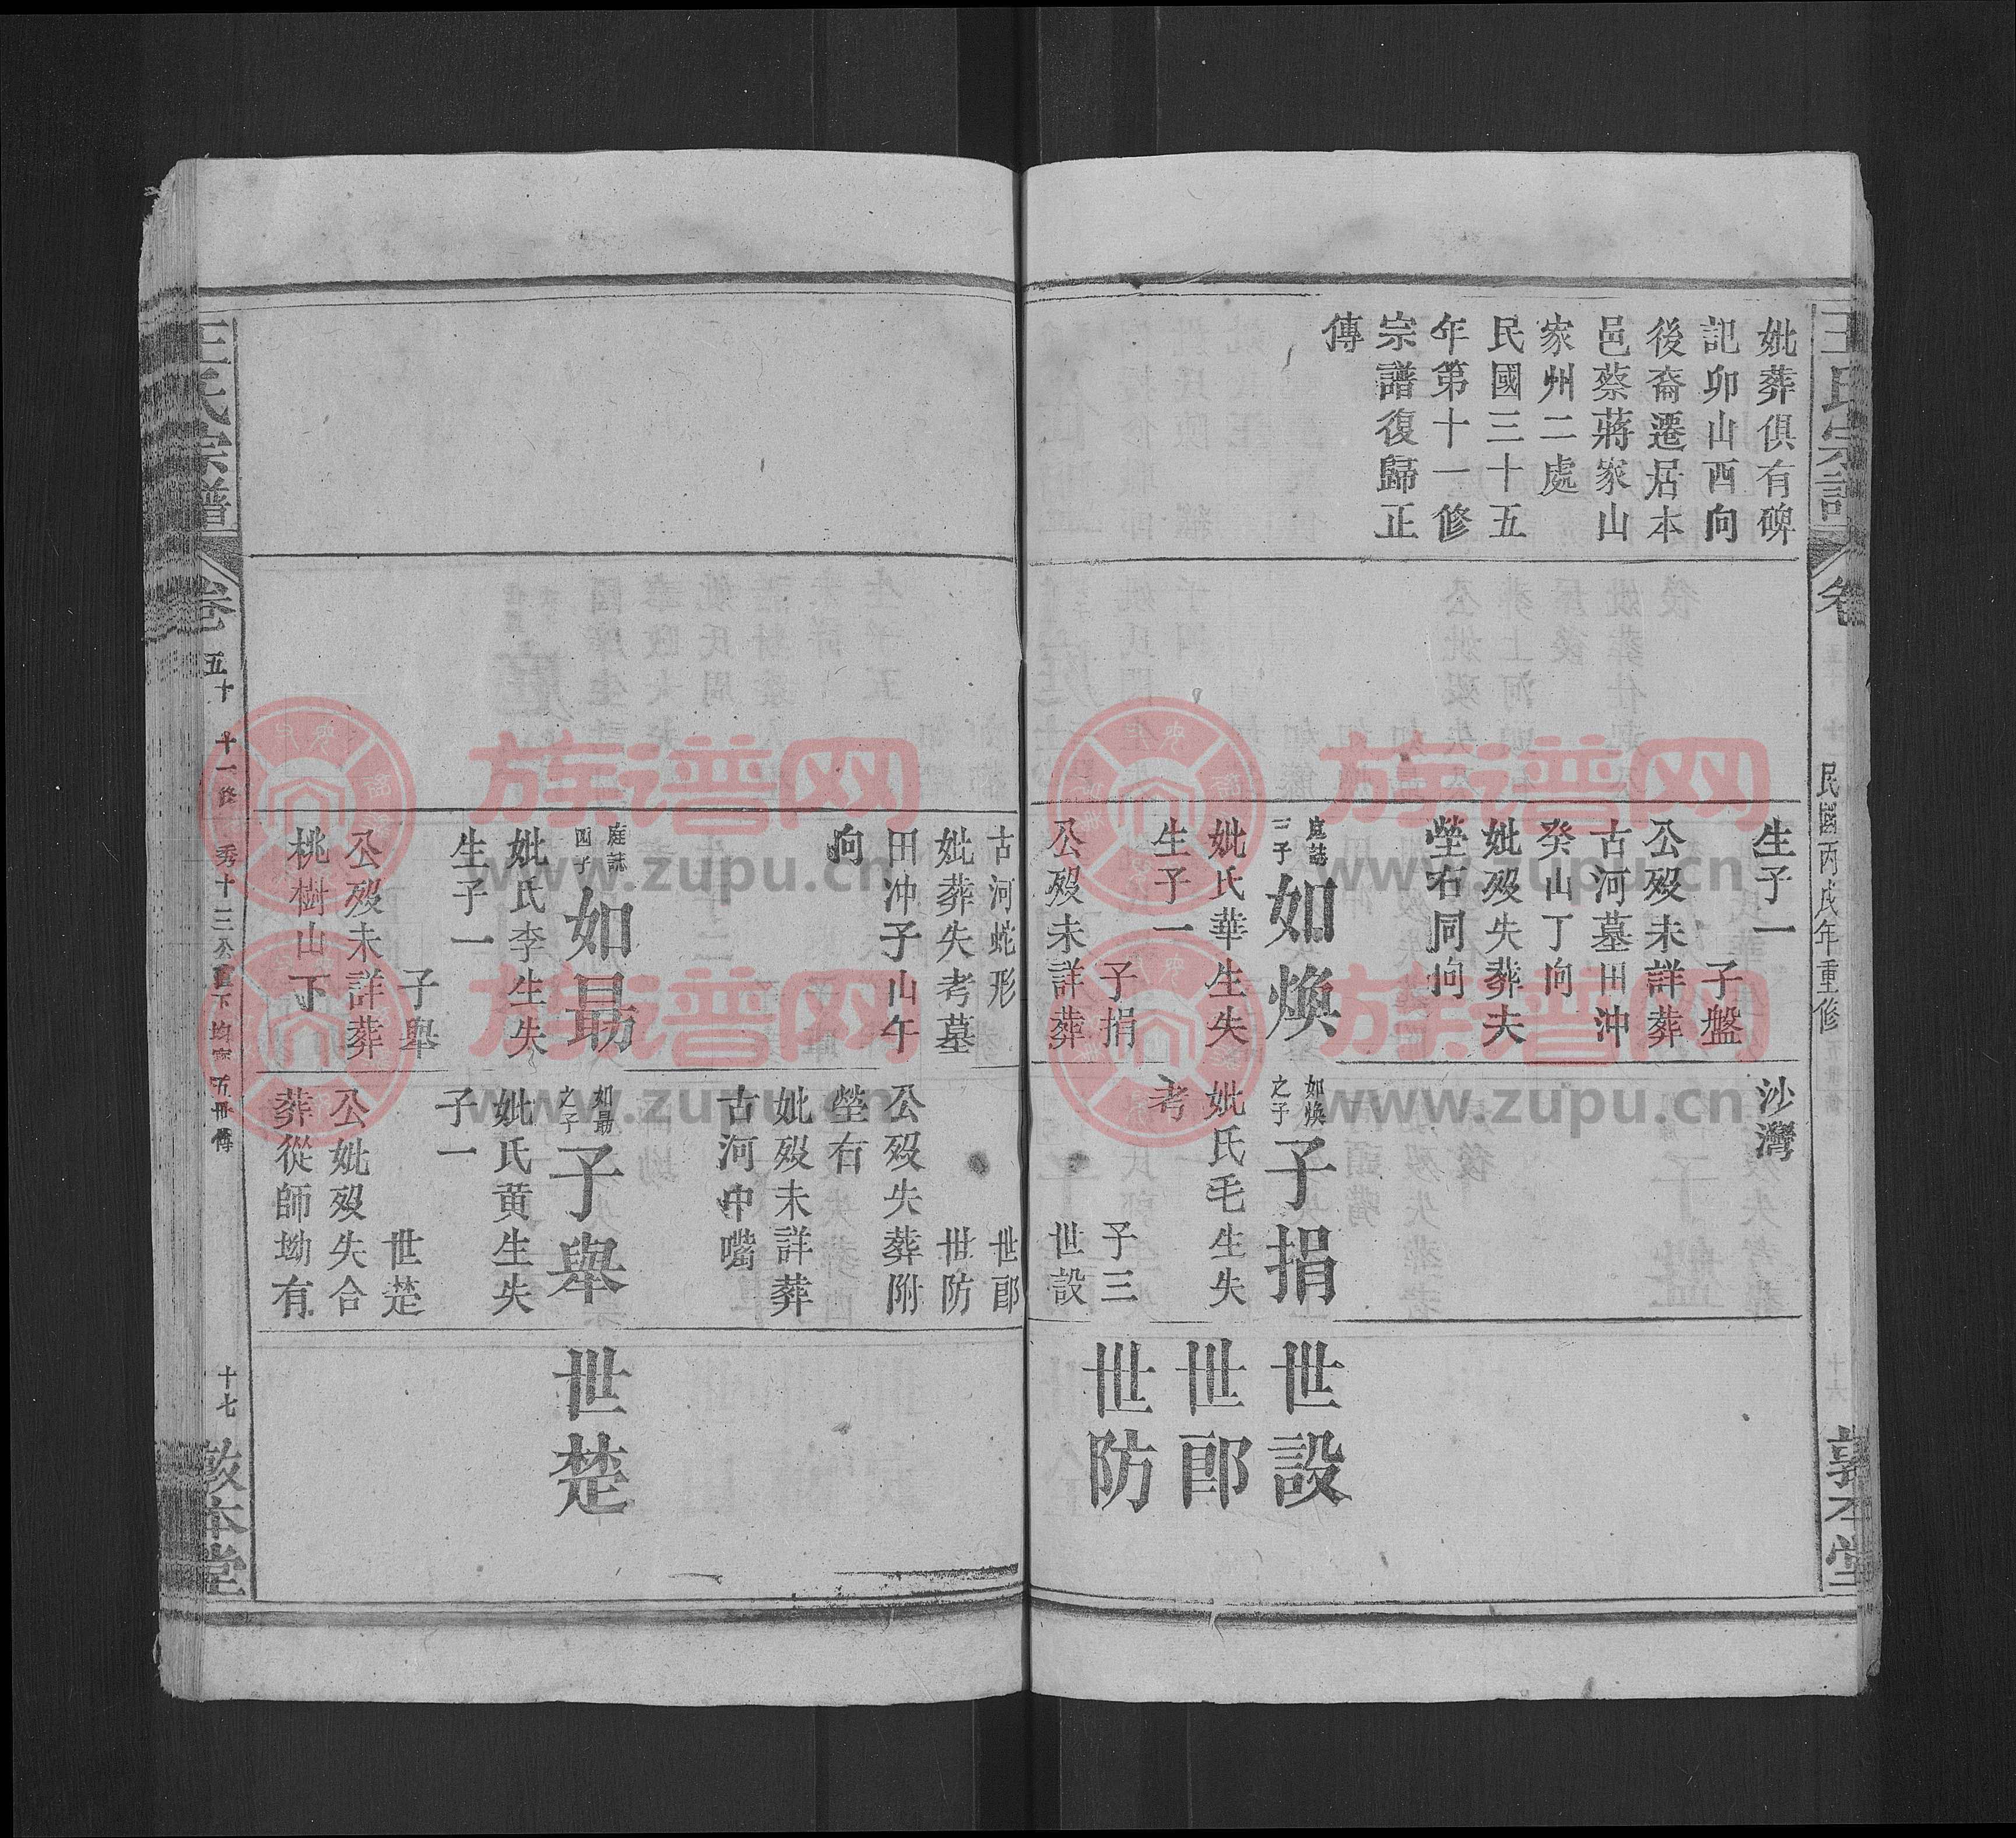 王氏宗譜
卷
民國丙戌年重修
敦本堂
妣葬俱有碑
記卯山西向
後裔遷居本
邑蔡蔣家山
家州二處
民國三十五
年第十一修
宗譜復歸正
傳
生子一
子盤
公歿未詳葬
古河墓田沖
癸山丁向
妣歿失葬夫
塋右同向
庭誌
三子
如煥
妣氏華生失
生子一
子捐
公歿未詳葬
沙灣
如煥
之子
子捐
妣氏毛生失
考
子三
世設
世設
世郎
世防
古河蛇形
妣葬失考墓
田沖子山午
向
庭誌
四子
如勗
妣氏李生失
生子一
子舉
公歿未詳葬
桃樹山下
世郎
世防
公歿失葬附
塋右
妣歿未詳葬
古河中嘴
如勗
之子
子舉
妣氏黃生失
子一
世楚
公妣歿失合
葬從師坳有
世楚
王氏宗譜
卷
五十
十一修
秀十三公
十七
敦本堂
族谱网
www.zupu.cn
族谱网
www.zupu.cn
族谱网
www.zupu.cn
族谱网
www.zupu.cn